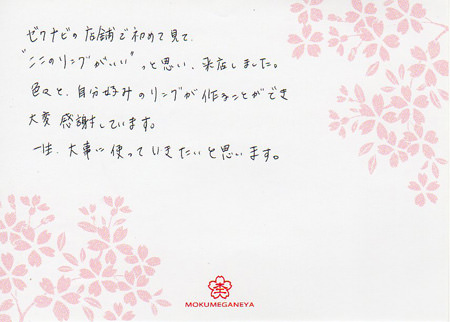 ゼクナビの店舗で初めて見て、
"ここのリングがいい"と思い、来店しました。
色々と、自分好みのリングが作ることができ
大変感謝しています。
一生、大事に使っていきたいと思います。
MOKUMEGANEYA